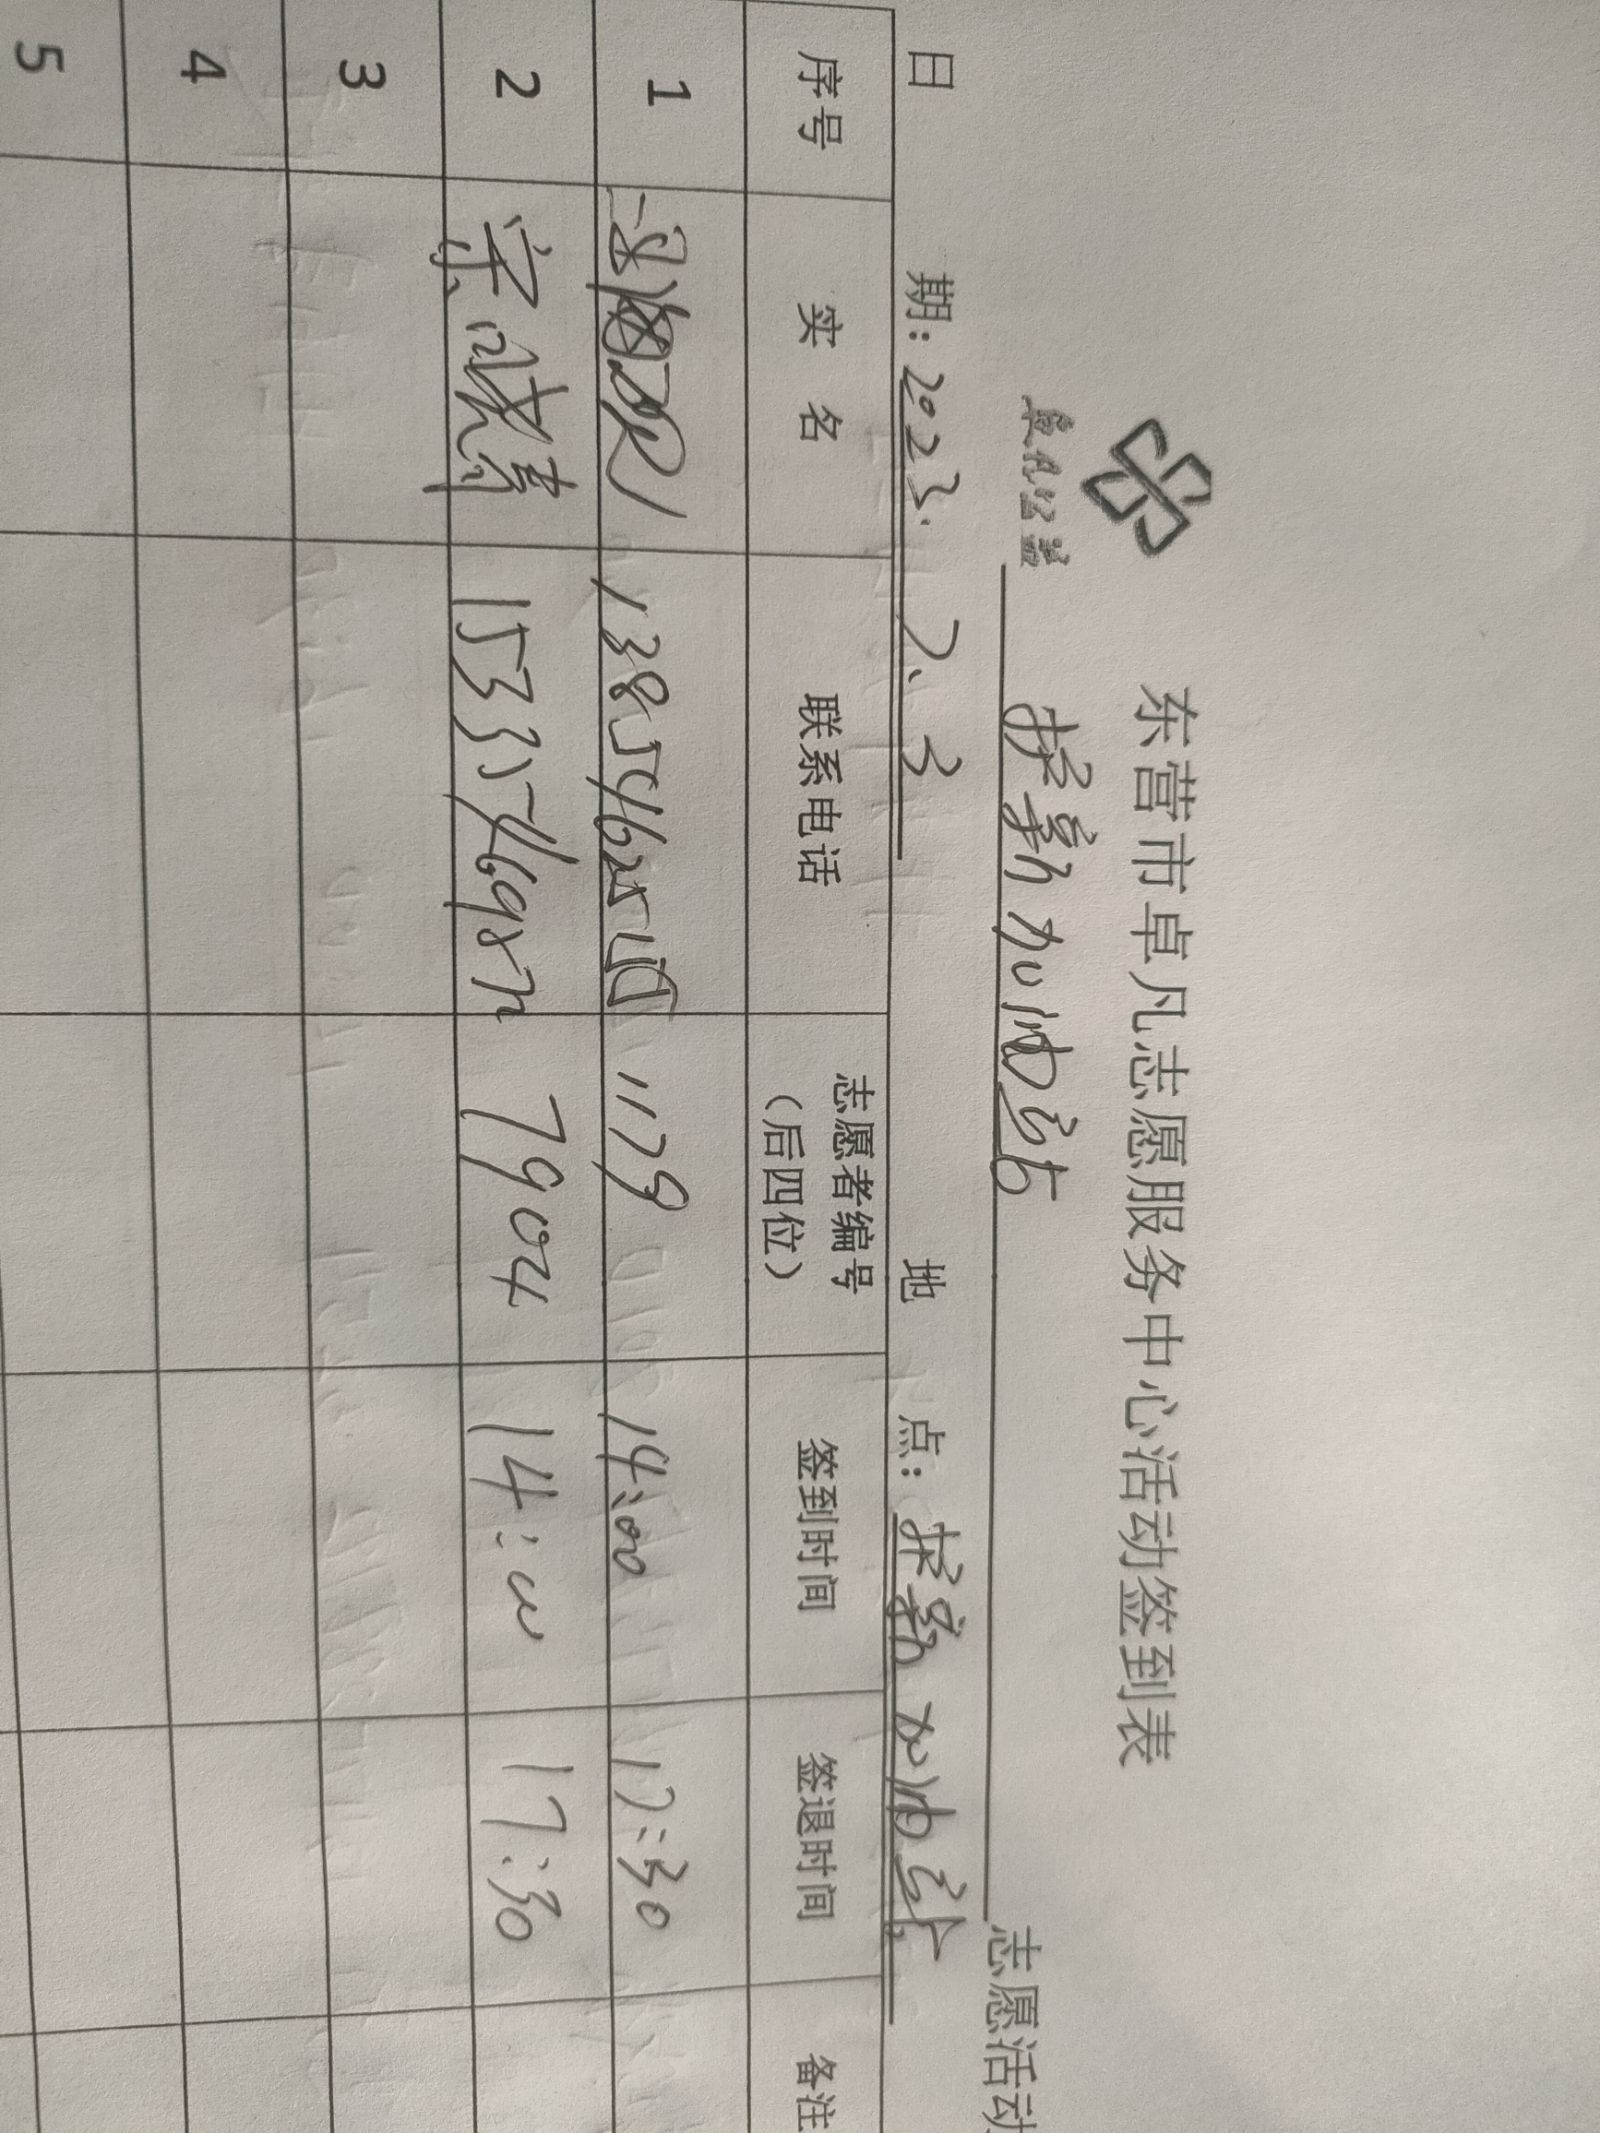 东营市卓凡志愿服务中心活动签到表
卓凡公益
护航加油站 志愿活动
日 期：2023.7.3 地 点：护航加油站
序号 实名 联系电话 志愿者编号（后四位） 签到时间 签退时间 备注
1 1179 14:00 17:30
2 7904 14:00 17:30
3
4
5